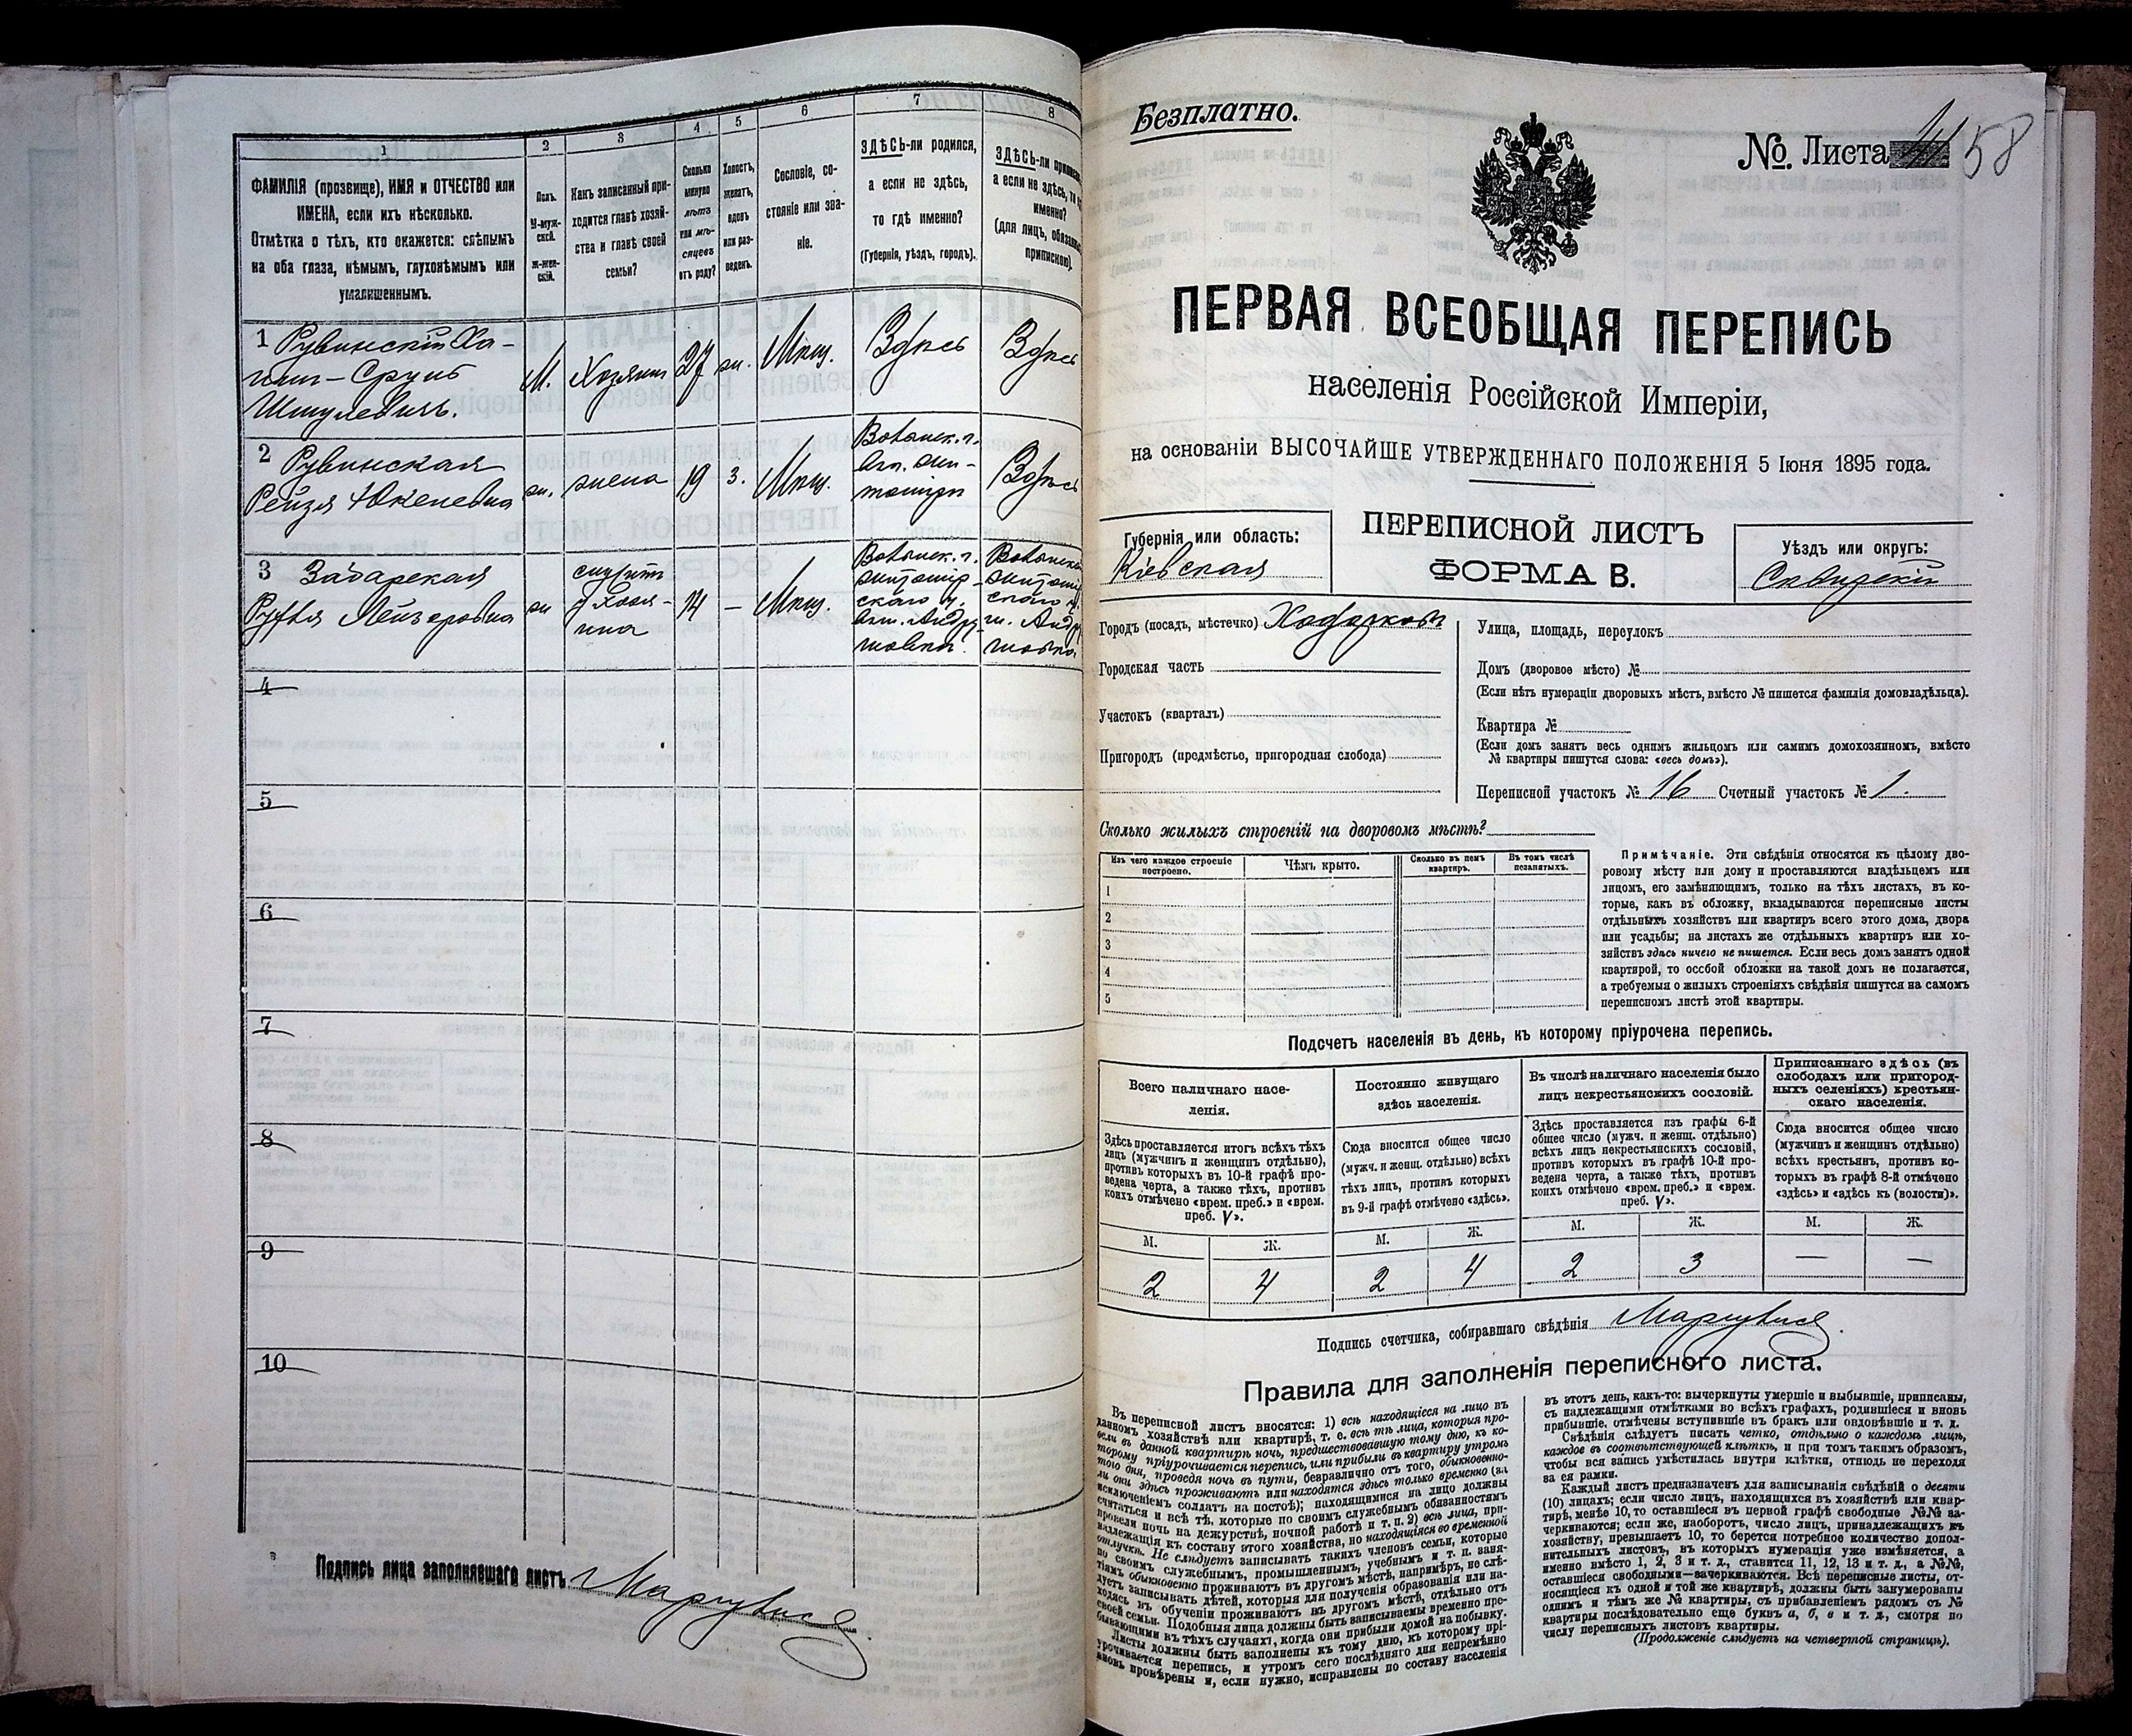 1
ФАМИЛІЯ (прозвище), ИМЯ и ОТЧЕСТВО или
ИМЕНА, если ихъ нѣсколько.
Отмѣтка о тѣхъ, кто окажется: слѣпымъ
на оба глаза, нѣмымъ, глухонѣмымъ или
умалишеннымъ.
2
Полъ.
М-муж-
ской.
Ж-жен-
скій.
3
Какъ записанный при-
ходится главѣ хозяй-
ства и главѣ своей
семьи?
4
Сколько
минуло
лѣтъ
или мѣ-
сяцевъ
отъ роду?
5
Холостъ,
женатъ,
вдовъ
или раз-
веденъ.
6
Сословіе, со-
стояніе или зва-
ніе.
7
ЗДѢСЬ-ли родился,
а если не здѣсь,
то гдѣ именно?
(Губернія, уѣздъ, городъ).
8
ЗДѢСЬ-ли
а если не здѣсь,
именно?
(для лицъ,
припискою).
1 Рувинскій Ха-
имъ-Сруль
Шмулевичъ.
М.
Хозяинъ
27
ж.
Мѣщ.
Здѣсь
Здѣсь
2 Рувинская
Рейзя
ж.
жена
19
з.
Мѣщ.
Волынск. г.
Здѣсь
3
Лейзеровна
ж
служитъ
у хозя-
ина
14
–
Мѣщ.
Волынск. г.
Житомір-
скаго у.
4
5
6
7
8
9
10
Подпись лица заполнявшаго листъ
Безплатно.
№ Листа 58
ПЕРВАЯ ВСЕОБЩАЯ ПЕРЕПИСЬ
населенія Россійской Имперіи,
на основаніи ВЫСОЧАЙШЕ УТВЕРЖДЕННАГО ПОЛОЖЕНІЯ 5 Іюня 1895 года.
Губернія или область:
Кіевская
ПЕРЕПИСНОЙ ЛИСТЪ
ФОРМА В.
Уѣздъ или округъ:
Сквирскій
Городъ (посадъ, мѣстечко) Ходорковъ
Городская часть
Участокъ (кварталъ)
Пригородъ (предмѣстье, пригородная слобода)
Улица, площадь, переулокъ
Домъ (дворовое мѣсто) №
(Если нѣтъ нумераціи дворовыхъ мѣстъ, вмѣсто № пишется фамилія домовладѣльца).
Квартира №
(Если домъ занятъ весь однимъ жильцомъ или самимъ домохозяиномъ, вмѣсто
№ квартиры пишутся слова: «весь домъ»).
Переписной участокъ № 16 Счетный участокъ № 1.
Сколько жилыхъ строеній на дворовомъ мѣстѣ?
Изъ чего каждое строеніе
построено.
Чѣмъ крыто.
Сколько въ немъ
квартиръ.
Въ томъ числѣ
незанятыхъ.
1
2
3
4
5
Примѣчаніе. Эти свѣдѣнія относятся къ цѣлому дво-
ровому мѣсту или дому и проставляются владѣльцемъ или
лицомъ, его замѣняющимъ, только на тѣхъ листахъ, въ ко-
торые, какъ въ обложку, вкладываются переписные листы
отдѣльныхъ хозяйствъ или квартиръ всего этого дома, двора
или усадьбы; на листахъ же отдѣльныхъ квартиръ или хо-
зяйствъ здѣсь ничего не пишется. Если весь домъ занятъ одной
квартирой, то особой обложки на такой домъ не полагается,
а требуемыя о жилыхъ строеніяхъ свѣдѣнія пишутся на самомъ
переписномъ листѣ этой квартиры.
Подсчетъ населенія въ день, къ которому пріурочена перепись.
Всего наличнаго насе-
ленія.
Здѣсь проставляется итогъ всѣхъ тѣхъ
лицъ (мужчинъ и женщинъ отдѣльно),
противъ которыхъ въ 10-й графѣ про-
ведена черта, а также тѣхъ, противъ
коихъ отмѣчено «врем. преб.» и «врем.
преб. V».
М. Ж.
2 4
Постоянно живущаго
здѣсь населенія.
Сюда вносится общее число
(мужч. и женщ. отдѣльно) всѣхъ
тѣхъ лицъ, противъ которыхъ
въ 9-й графѣ отмѣчено «здѣсь».
М. Ж.
2 4
Въ числѣ наличнаго населенія было
лицъ некрестьянскихъ сословій.
Здѣсь проставляется изъ графы 6-й
общее число (мужч. и женщ. отдѣльно)
всѣхъ лицъ некрестьянскихъ сословій,
противъ которыхъ въ графѣ 10-й про-
ведена черта, а также тѣхъ, противъ
коихъ отмѣчено «врем. преб.» и «врем.
преб. V».
М. Ж.
2 3
Приписаннаго здѣсь (въ
слободахъ или пригород-
ныхъ селеніяхъ) крестьян-
скаго населенія.
Сюда вносится общее число
(мужчинъ и женщинъ отдѣльно)
всѣхъ крестьянъ, противъ ко-
торыхъ въ графѣ 8-й отмѣчено
«здѣсь» и «здѣсь къ (волости)».
М. Ж.
— —
Подпись счетчика, собиравшаго свѣдѣнія
Правила для заполненія переписного листа.
Въ переписной листъ вносятся: 1) всѣ находящіеся на лицо въ
данномъ хозяйствѣ или квартирѣ, т. е. всѣ тѣ лица, которыя про-
вели въ данной квартирѣ ночь, предшествовавшую тому дню, къ ко-
торому пріурочивается перепись, или прибыли въ квартиру утромъ
того дня, проведя ночь въ пути, безразлично отъ того, обыкновенно-
ли они здѣсь проживаютъ или находятся здѣсь только временно (за
исключеніемъ солдатъ на постоѣ); находящимися на лицо должны
считаться и всѣ тѣ, которые по своимъ служебнымъ обязанностямъ
провели ночь на дежурствѣ, ночной работѣ и т. п. 2) всѣ лица, при-
надлежащія къ составу этого хозяйства, но находящіяся во временной
отлучкѣ. Не слѣдуетъ записывать такихъ членовъ семьи, которые
по своимъ служебнымъ, промышленнымъ, учебнымъ и т. п. заня-
тіямъ обыкновенно проживаютъ въ другомъ мѣстѣ, напримѣръ, не слѣ-
дуетъ записывать дѣтей, которыя для полученія образованія или на-
ходясь въ обученіи проживаютъ въ другомъ мѣстѣ, отдѣльно отъ
своей семьи. Подобныя лица должны быть записываемы временно пре-
бывающими въ тѣхъ случаяхъ, когда они прибыли домой на побывку.
Листы должны быть заполнены къ тому дню, къ которому прі-
урочивается перепись, и утромъ сего послѣдняго дня непремѣнно
вновь провѣрены и, если нужно, исправлены по составу населенія
въ этотъ день, какъ-то: вычеркнуты умершіе и выбывшіе, приписаны,
съ надлежащими отмѣтками во всѣхъ графахъ, родившіеся и вновь
прибывшіе, отмѣчены вступившіе въ бракъ или овдовѣвшіе и т. д.
Свѣдѣнія слѣдуетъ писать четко, отдѣльно о каждомъ лицѣ,
каждое въ соотвѣтствующей клѣткѣ, и при томъ такимъ образомъ,
чтобы вся запись умѣстилась внутри клѣтки, отнюдь не переходя
за ея рамки.
Каждый листъ предназначенъ для записыванія свѣдѣній о десяти
(10) лицахъ; если число лицъ, находящихся въ хозяйствѣ или квар-
тирѣ, менѣе 10, то оставшіеся въ первой графѣ свободные №№ за-
черкиваются; если же, наоборотъ, число лицъ, принадлежащихъ къ
хозяйству, превышаетъ 10, то берется потребное количество допол-
нительныхъ листовъ, въ которыхъ нумерація уже измѣняется, а
именно вмѣсто 1, 2, 3 и т. д., ставится 11, 12, 13 и т. д., а №№,
оставшіеся свободными—зачеркиваются. Всѣ переписные листы, от-
носящіеся къ одной и той же квартирѣ, должны быть занумерованы
однимъ и тѣмъ же № квартиры, съ прибавленіемъ рядомъ съ №
квартиры послѣдовательно еще буквъ а, б, в и т. д., смотря по
числу переписныхъ листовъ квартиры.
(Продолженіе слѣдуетъ на четвертой страницѣ).